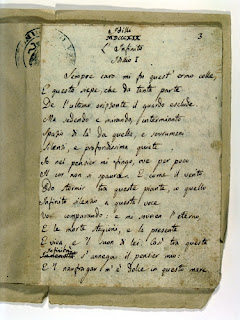 3
L'Infinito
Idillio I
Sempre caro mi fu quest'ermo colle,
E questa siepe che da tanta parte
De l'ultimo orizzonte il guardo esclude.
Ma sedendo e mirando, l'interminato
Spazio di là da quella, e sovrumani
Silenzi, e profondissima quiete
Io nel pensier mi fingo, ove per poco
Il cor non si spaura. E come il vento
Odo stormir tra queste piante, io quello
Infinito silenzio a questa voce
Vo comparando: e mi sovvien l'eterno,
E le morte stagioni, e la presente
E viva, e 'l suon di lei. Così tra questa
s'annega il pensier mio:
E 'l naufragar m'è dolce in questo mare